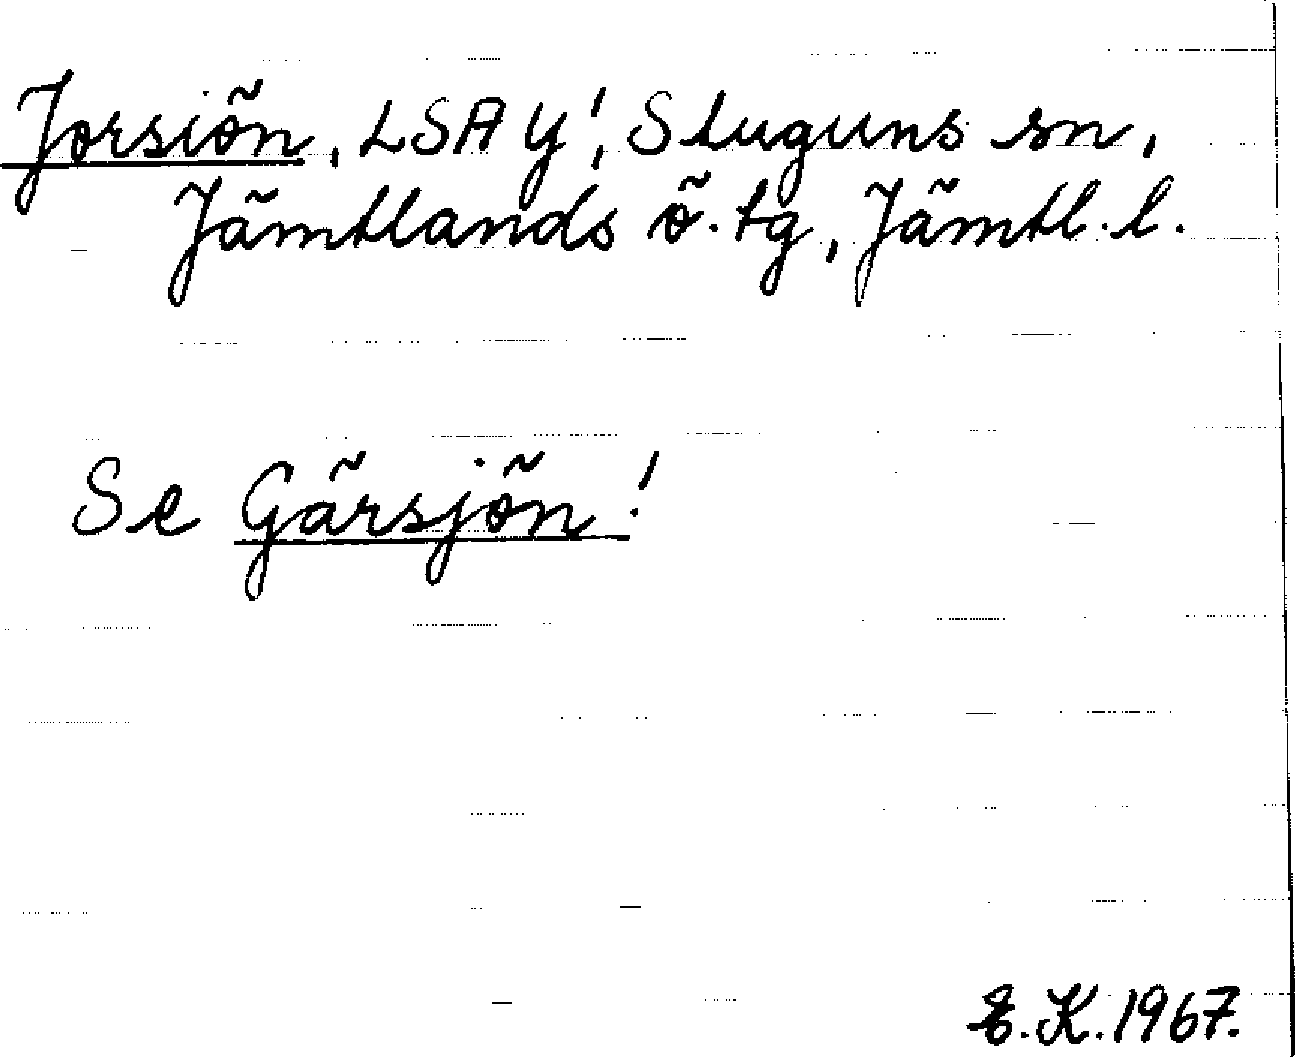 Jorsiön, LSA y!, Stuguns sn,
Jämtlands ö. tg, Jämtl. l.
Se Gärsjön!
E.K. 1967.